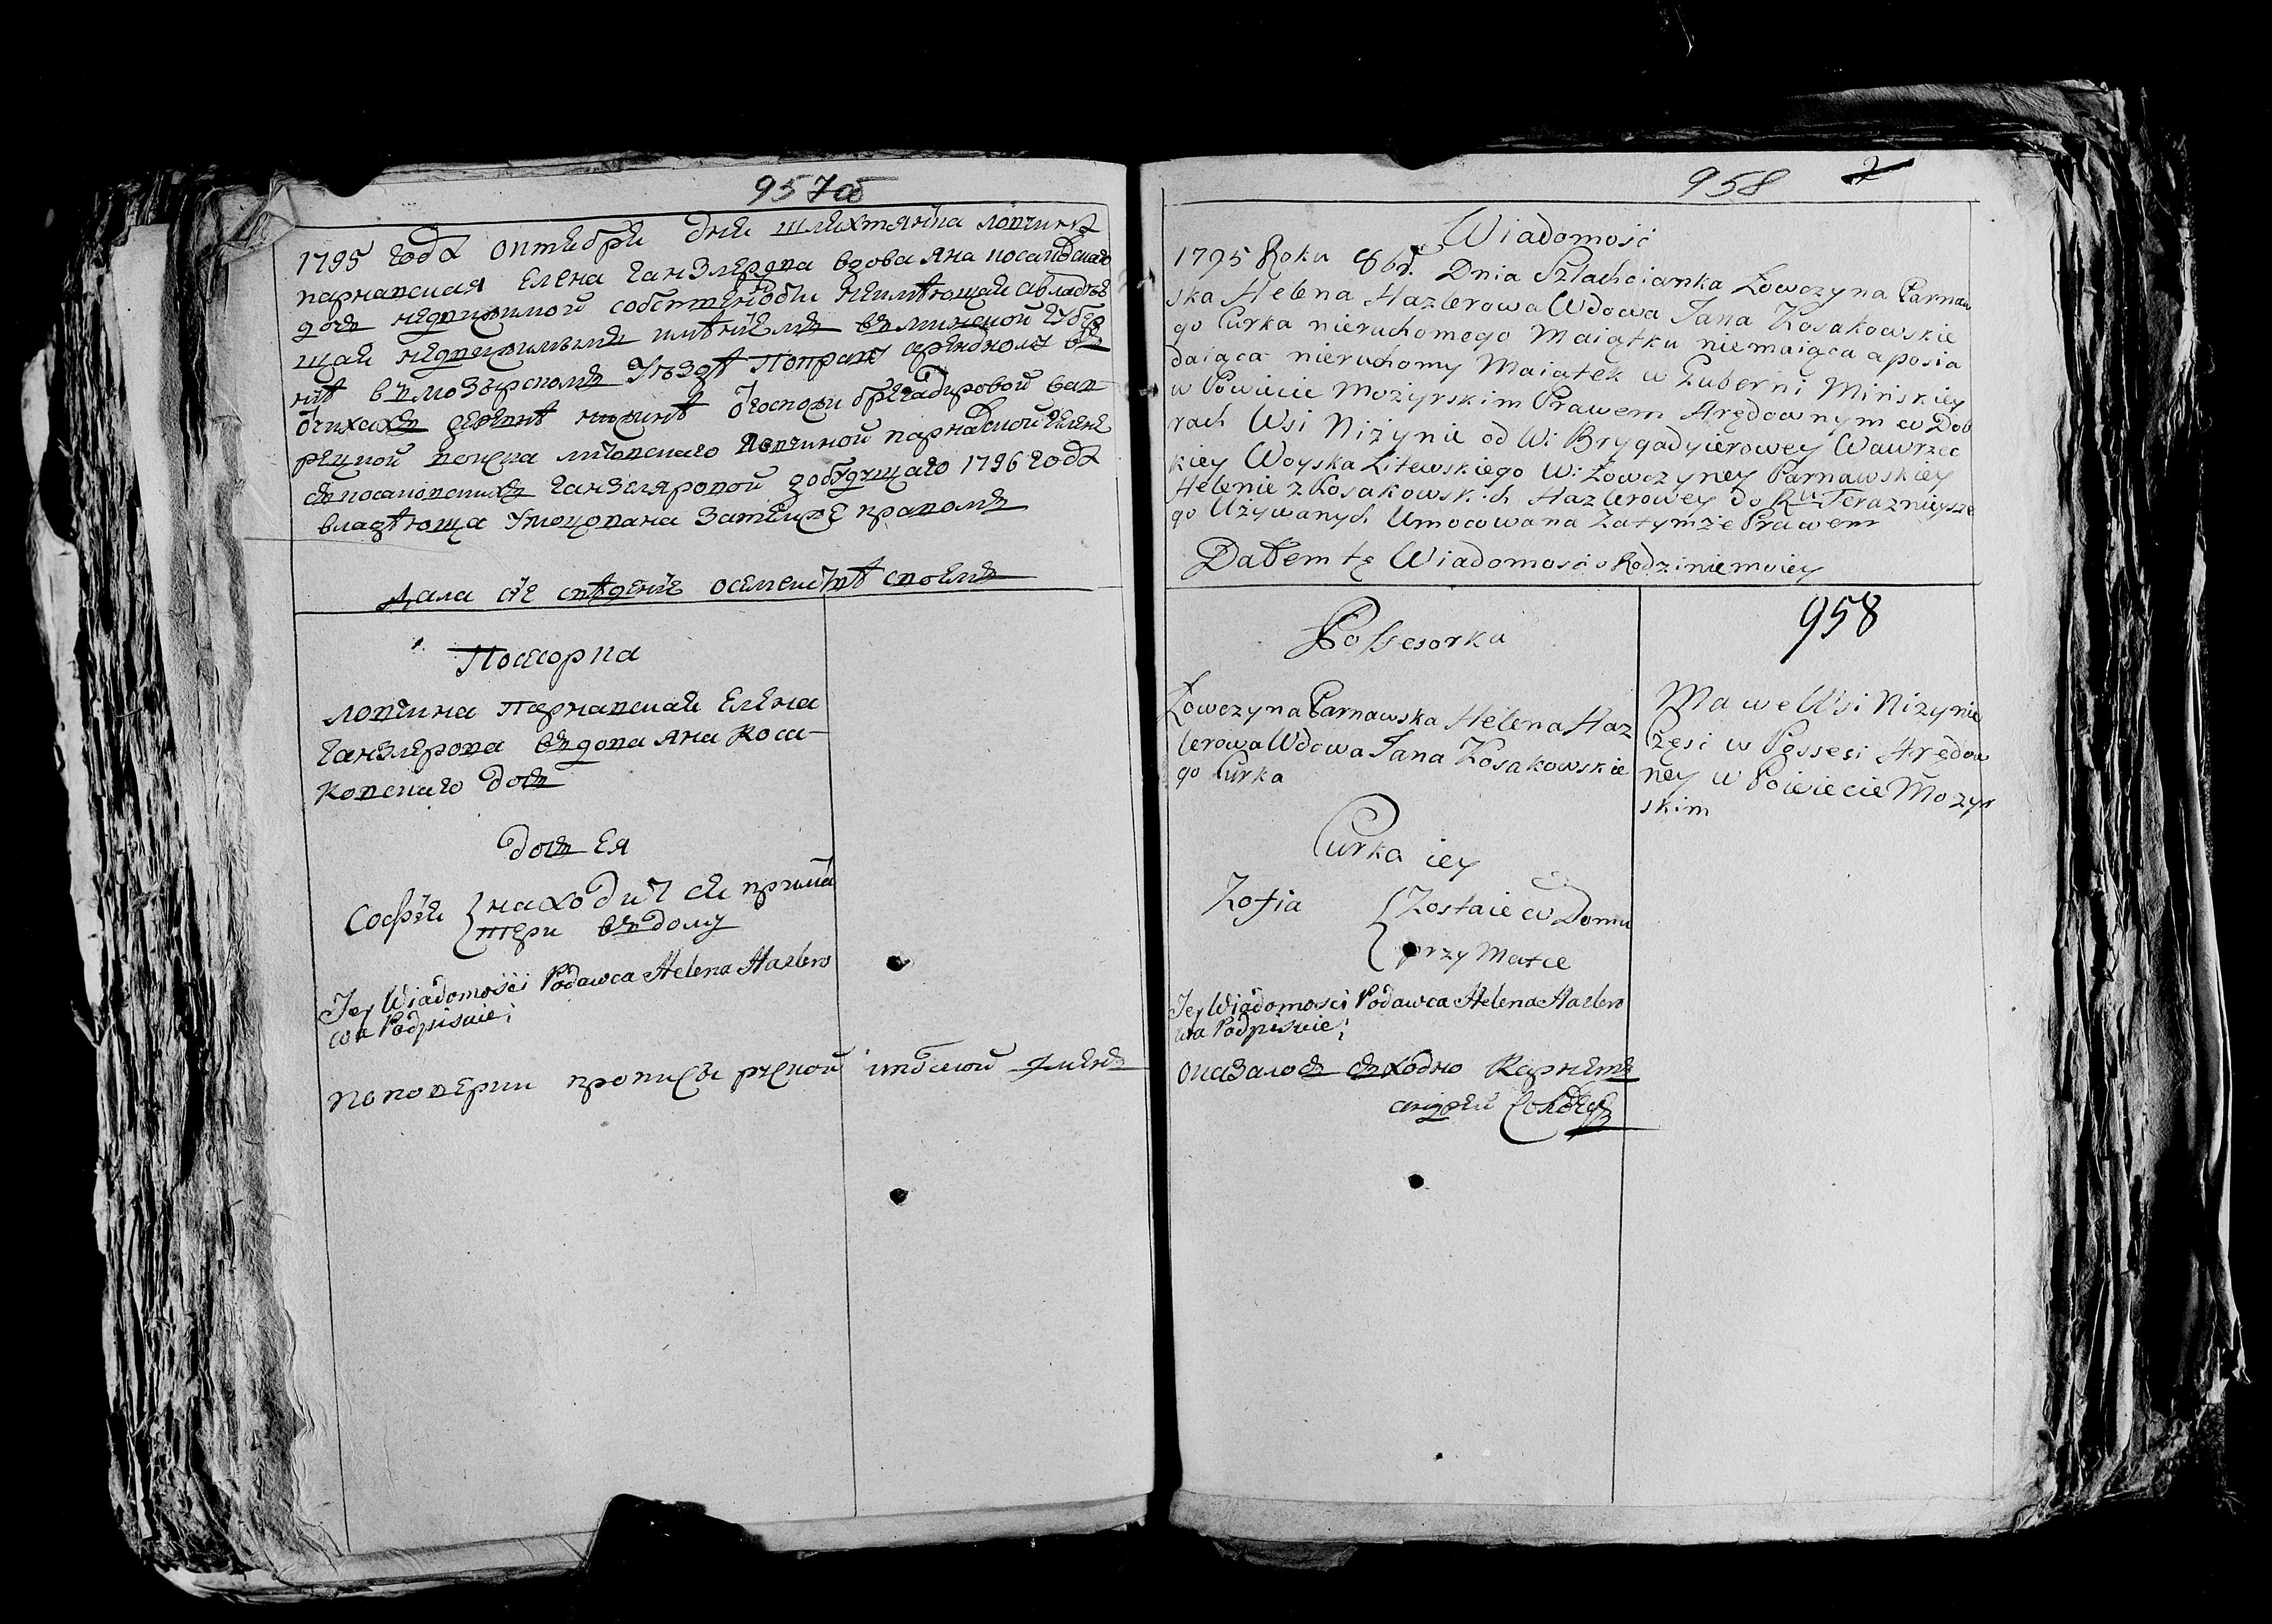 957об
1795 года октября дня шляхтянка ловчина
парнавская Елена Ганзлерова вдова Яна Косаковскаго
дочь недвижимой собственности неимѣющая авладѣю
щая недвижимымъ имѣниемъ въ минской губер
нѣ въ мозырскомъ уѣздѣ поправу арендному въ
деревнѣ нижинѣ госпожи бригадировой вав
рецкой войска литовскаго ловчиной парнавской Елене
съ косаковскихъ Ганзляровой добудущаго 1796 года
владѣюща умоцована затемже правомъ
Дала сие свѣдение осемействѣ своемъ
Посесорка
ловчина парнавская Елена
Ганзлерова въдова Яна Коса-
ковскаго дочь
дочь Ея
София находитъся прима
тери въдому
Jey Wiadomości Podawca Helena Hazlero
wa Podpisuie;
поповерки прописы руской ипольской
958 2
Wiadomość
1795 Roku 8br. Dnia Szlachcianka Łowczyna Parnaw
ska Helena Hazlerowa Wdowa Jana Kosakowskie
go Curka nieruchomego Maiątku niemaiąca a posia
daiąca nieruchomy Maiątek w Guberni Mińskiey
w Powiecie Możyrskim Prawem Arędownym w Dob
rach Wsi Niżynie od W: Brygadyierowey Wawrzec
kiey Woyska Litewskiego W: Łowczyney Parnawskiey
Helenie z Kosakowskich Hazlerowey do Ru Teraznieysze
go Używanych Umocowana Zatymże Prawem
Dałem tę Wiadomość o Rodzinie moiey
Possesorka
Łowczyna Parnawska Helena Haz
lerowa Wdowa Jana Kosakowskie
go Curka
Curka iey
Zofia Zostaie w Domu
przy Matce
Jey Wiadomości Podawca Helena Hazlero
wa Podpisuie;
оказалось съходно Карнетъ
андрей
958
Ma we Wsi Niżynie
Częsć w Possesi Arędow
ney w Powiecie Możyr
skim